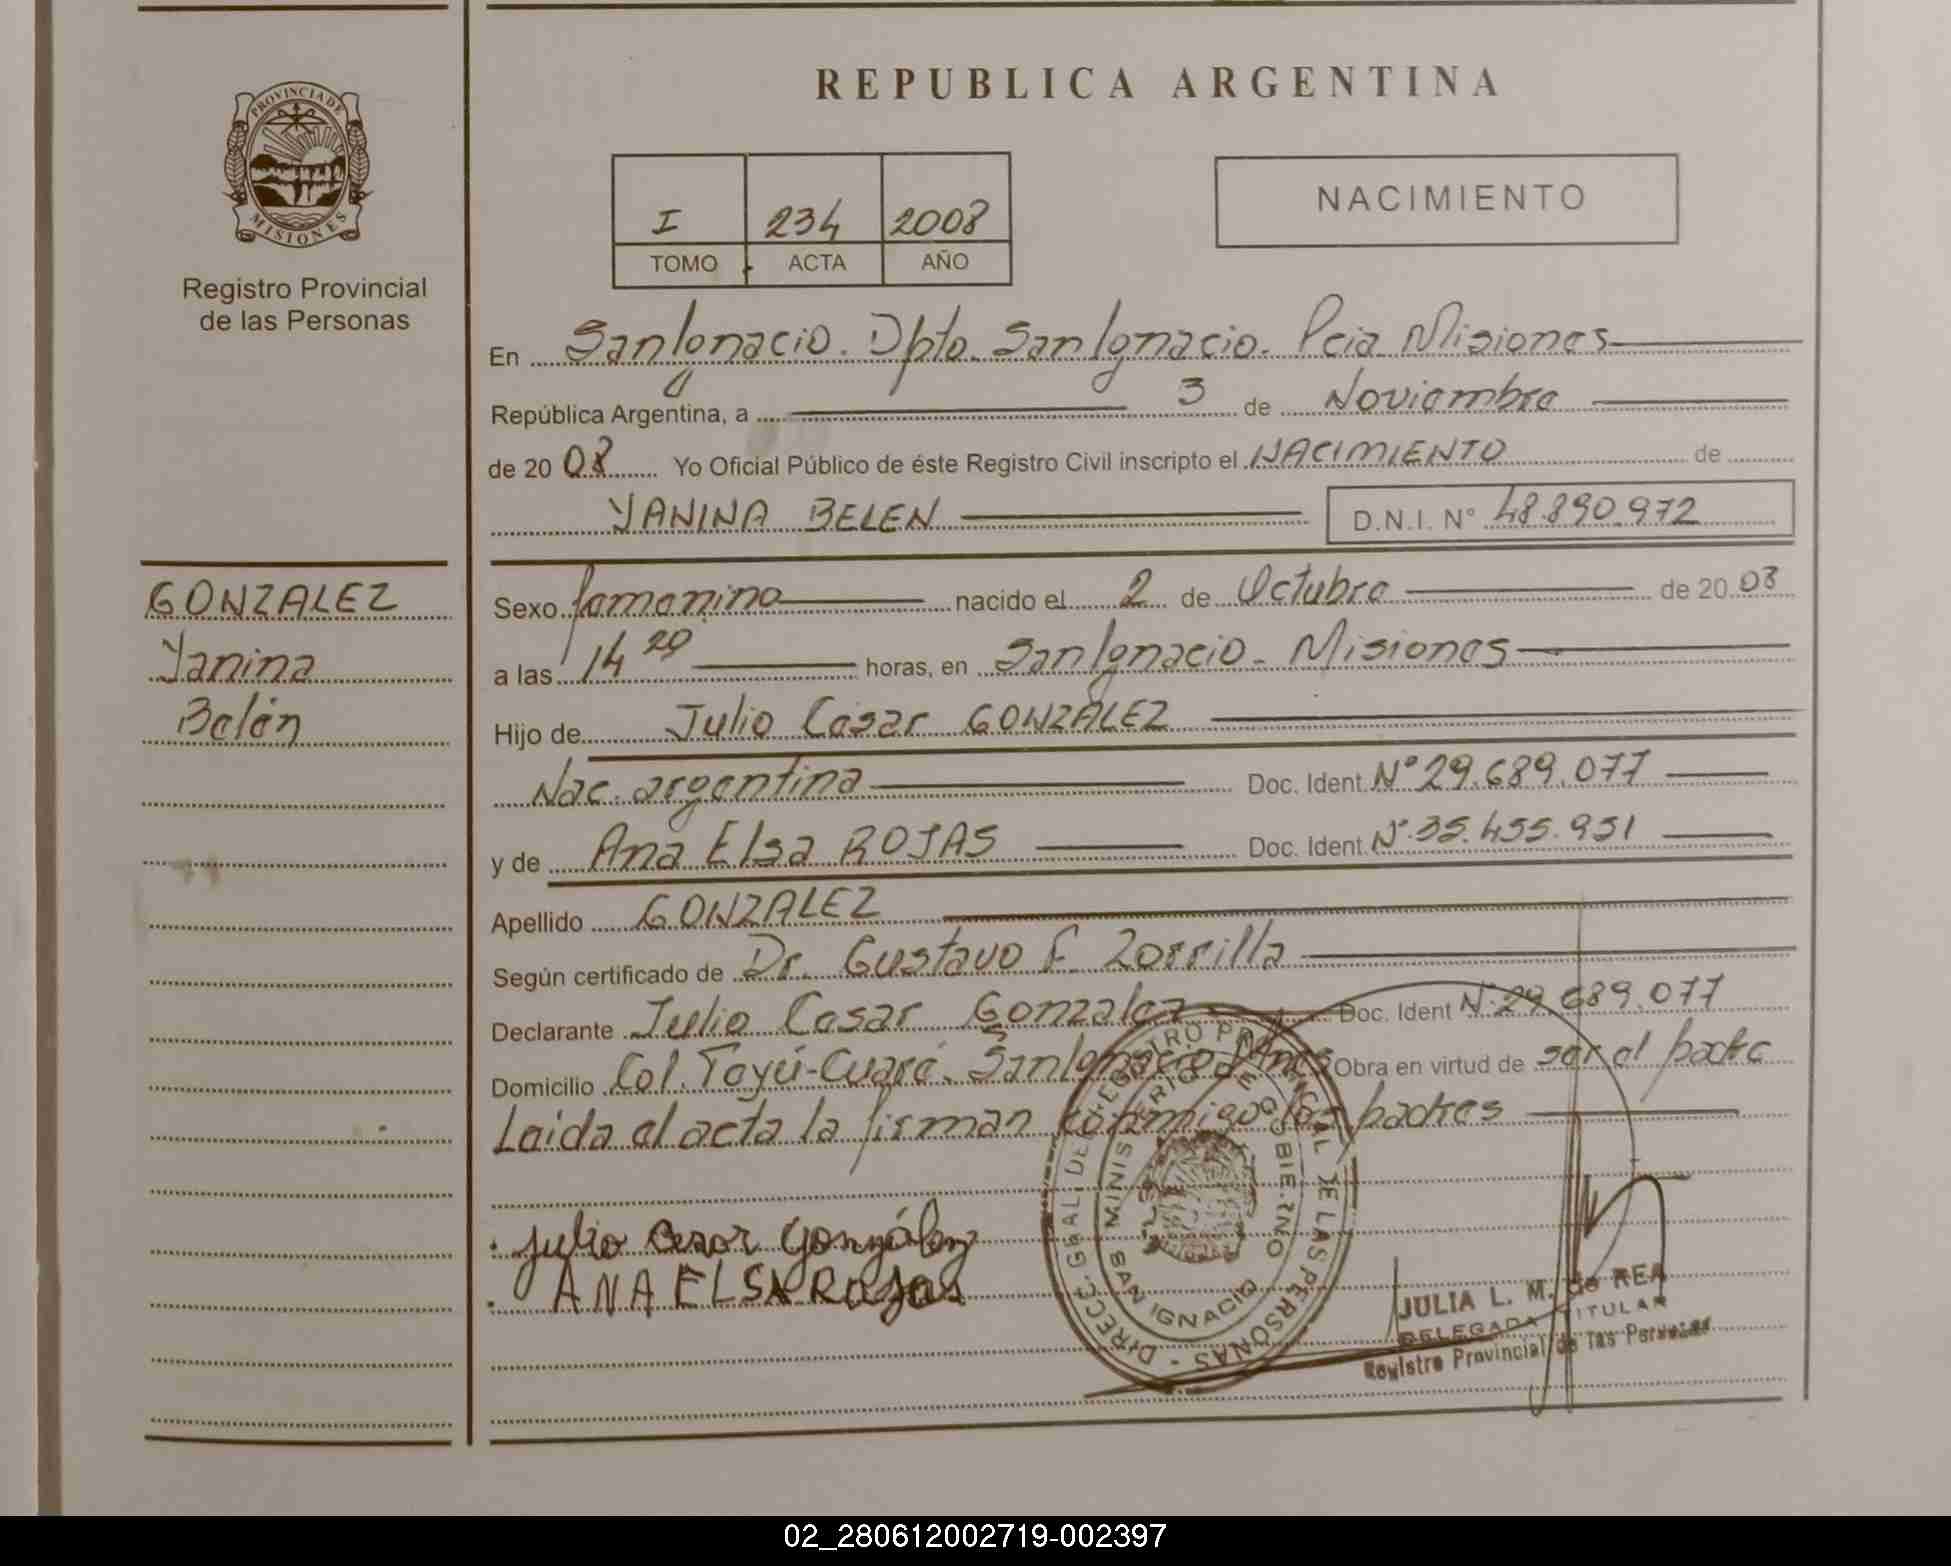 REPUBLICA ARGENTINA
PROVINCIA DE
MISIONES
Registro Provincial
de las Personas
I 234 2008
TOMO ACTA AÑO
NACIMIENTO
En San Ignacio. Dpto. San Ignacio. Pcia Misiones
República Argentina, a 3 de Noviembre
de 20 08 Yo Oficial Público de éste Registro Civil inscripto el NACIMIENTO de
YANINA BELEN D.N.I. N° 48.890.972
GONZALEZ
Yanina
Belén
Sexo femenino nacido el 2 de Octubre de 20 08
a las 14 20 horas, en San Ignacio - Misiones
Hijo de Julio Cesar GONZALEZ
Nac. argentina Doc. Ident. N° 29.689.077
y de Ana Elsa ROJAS Doc. Ident. N° 35.455.951
Apellido GONZALEZ
Según certificado de Dr. Gustavo F. Zorrilla
Declarante Julio Cesar Gonzalez Doc. Ident N° 29.689.077
Domicilio Col. Teyú-Cuaré. San Ignacio Mnes Obra en virtud de ser el padre
Leida el acta la firman conmigo los padres
Julio Cesar González
ANA ELSA Rojas
DIRECC. GRAL. DEL REGISTRO PROVINCIAL DE LAS PERSONAS
MINISTERIO DE GOBIERNO
SAN IGNACIO
JULIA L. M. de REA
DELEGADA TITULAR
Registro Provincial de las Personas
02_280612002719-002397